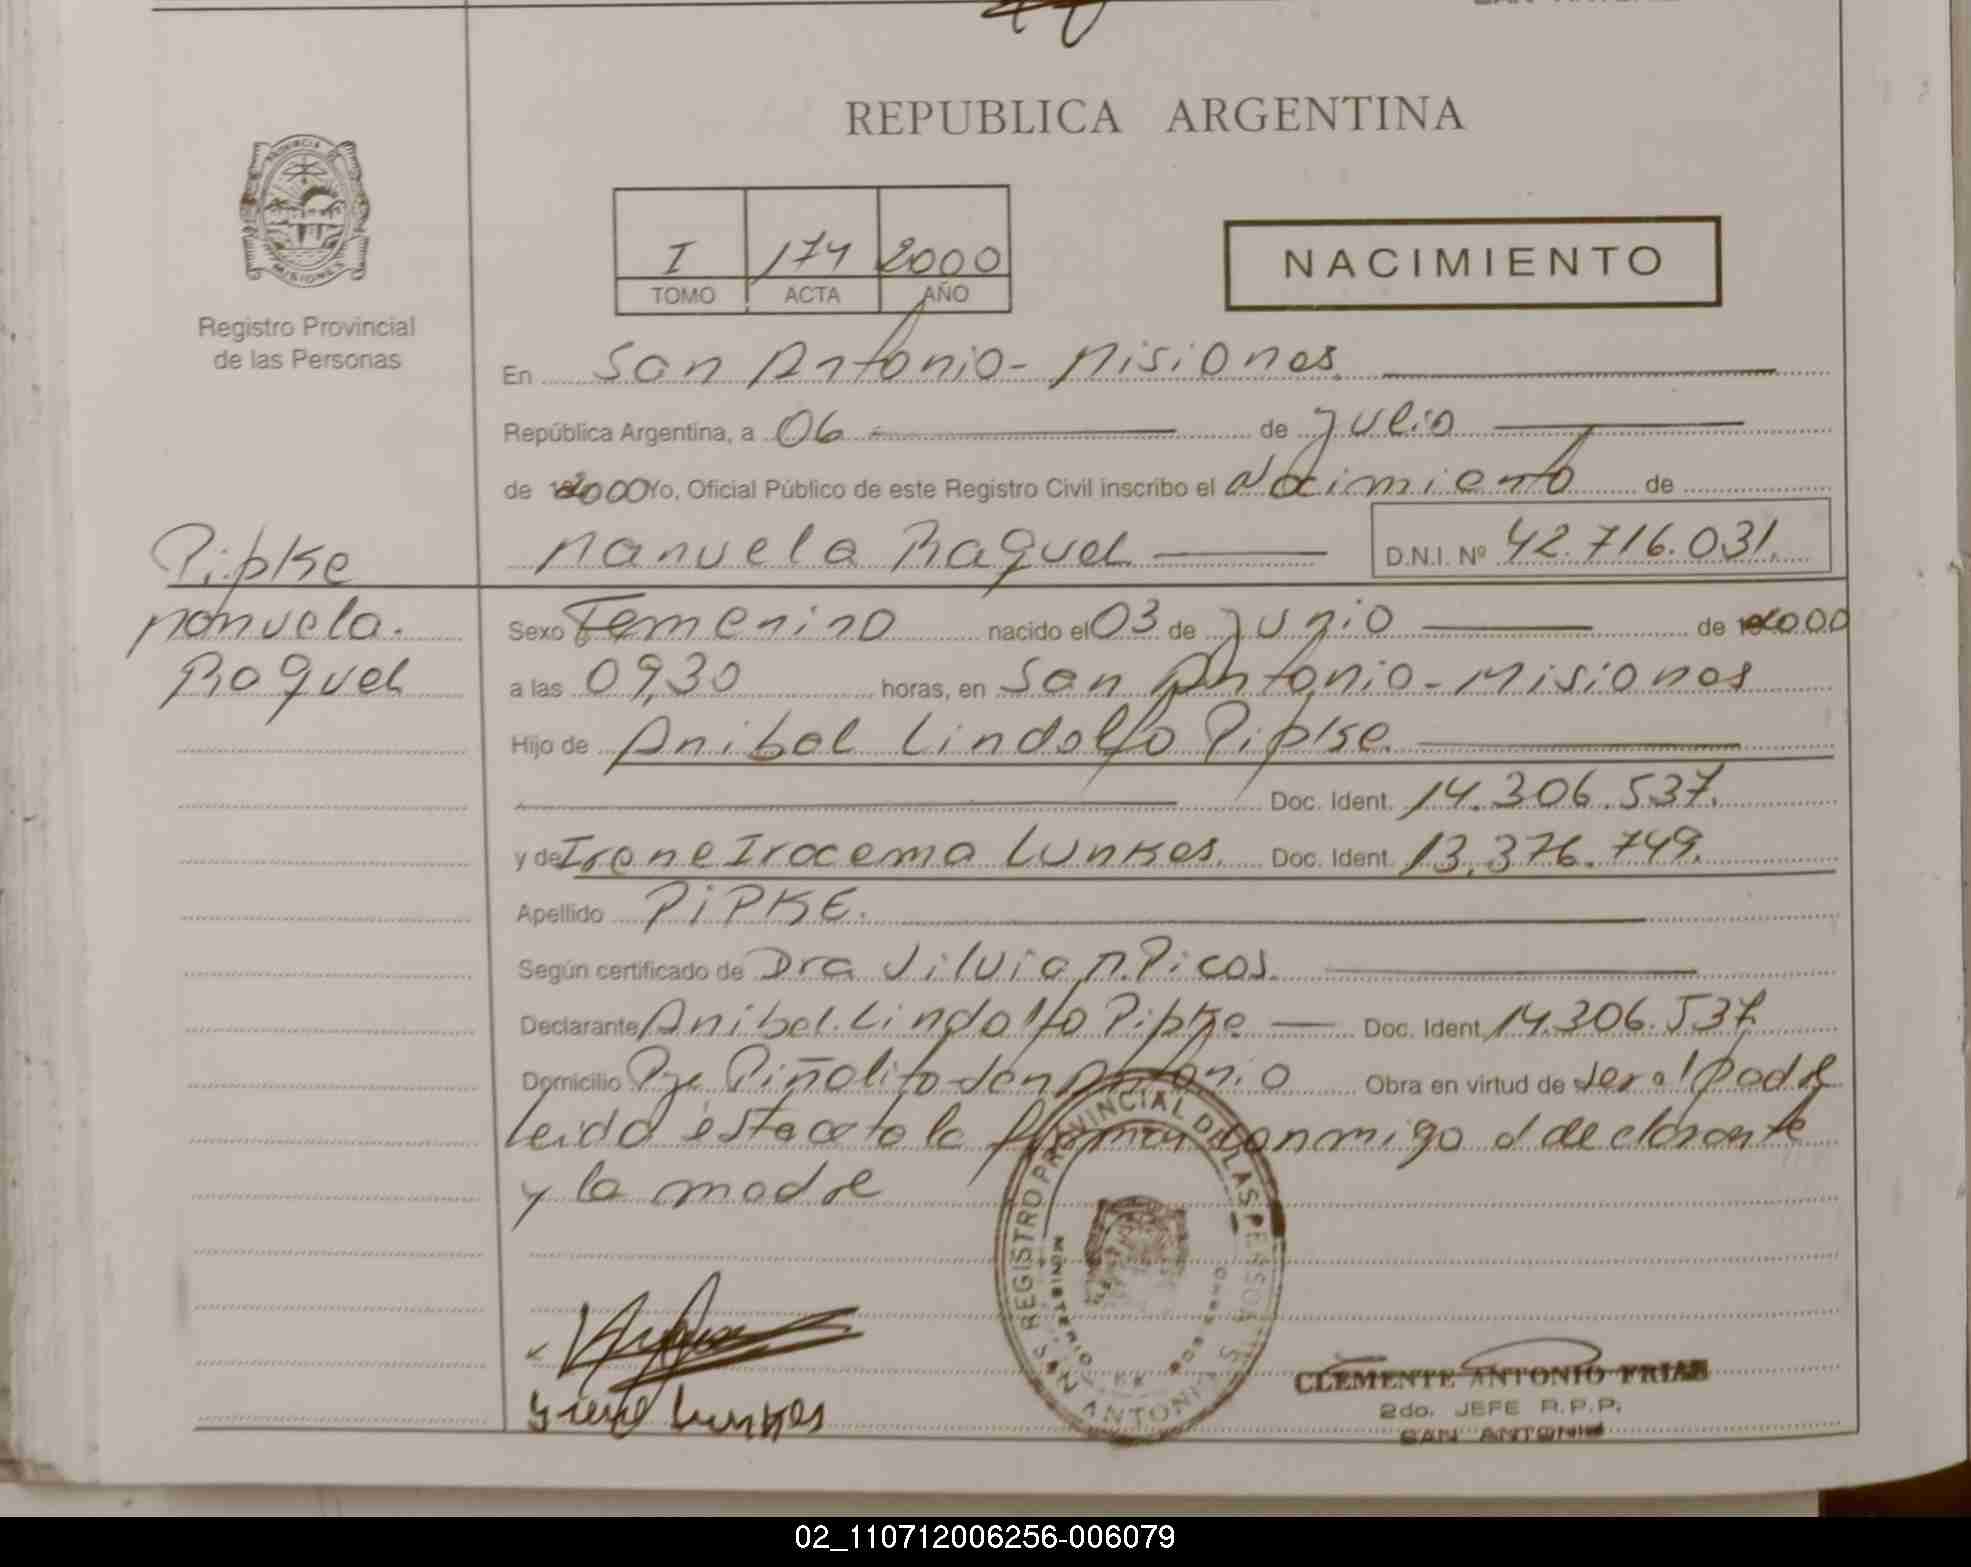 REPUBLICA ARGENTINA
PROVINCIA DE
MISIONES
Registro Provincial
de las Personas
I 174 2000
TOMO ACTA AÑO
NACIMIENTO
En San Antonio - Misiones
República Argentina, a 06 de Julio
de 2000 Yo, Oficial Público de este Registro Civil inscribo el Nacimiento de
Manuela Raquel D.N.I. Nº 42.716.031.
Pipke
Manuela.
Raquel
Sexo Femenino nacido el 03 de Junio de 2000
a las 09,30 horas, en San Antonio - Misiones
Hijo de Anibal Lindolfo Pipke.
Doc. Ident. 14.306.537.
y de Irene Iracema Lunkes. Doc. Ident. 13.376.749.
Apellido PIPKE.
Según certificado de Dra Silvia M. Picos.
Declarante Anibal Lindolfo Pipke Doc. Ident. 14.306.537
Domicilio Pje Piñalito San Antonio Obra en virtud de ser el Padre
leida ésta acta la firman conmigo el declarante
y la madre
REGISTRO PROVINCIAL DE LAS PERSONAS
MINISTERIO
SAN ANTONIO
Irene Lunkes
CLEMENTE ANTONIO FRIAS
2do. JEFE R.P.P.
SAN ANTONIO
02_110712006256-006079